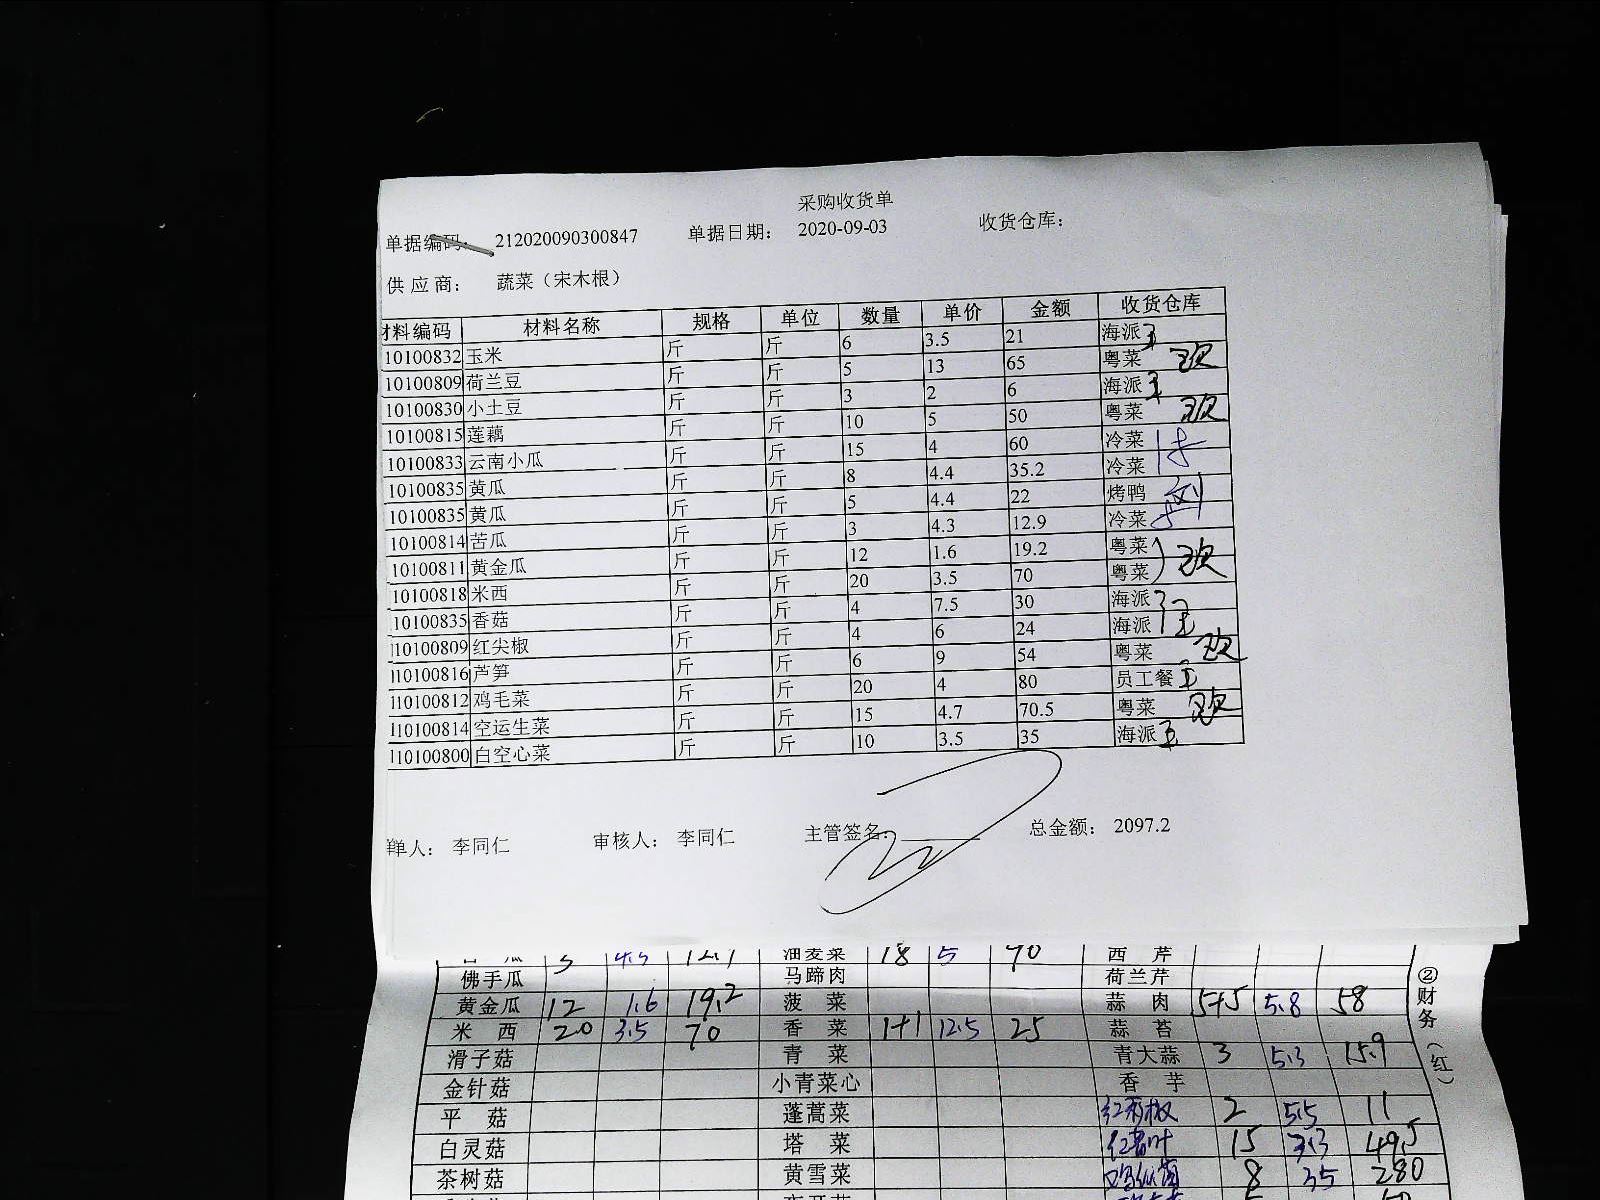 采购收货单
单据编码： 212020090300847 单据日期： 2020-09-03 收货仓库：
供 应 商： 蔬菜（宋木根）
材料编码 材料名称 规格 单位 数量 单价 金额 收货仓库
10100832 玉米 斤 斤 6 3.5 21 海派
10100809 荷兰豆 斤 斤 5 13 65 粤菜
10100830 小土豆 斤 斤 3 2 6 海派
10100815 莲藕 斤 斤 10 5 50 粤菜
10100833 云南小瓜 斤 斤 15 4 60 冷菜
10100835 黄瓜 斤 斤 8 4.4 35.2 冷菜
10100835 黄瓜 斤 斤 5 4.4 22 烤鸭
10100814 苦瓜 斤 斤 3 4.3 12.9 冷菜
10100811 黄金瓜 斤 斤 12 1.6 19.2 粤菜
10100818 米西 斤 斤 20 3.5 70 粤菜
10100835 香菇 斤 斤 4 7.5 30 海派
110100809 红尖椒 斤 斤 4 6 24 海派
110100816 芦笋 斤 斤 6 9 54 粤菜
110100812 鸡毛菜 斤 斤 20 4 80 员工餐
110100814 空运生菜 斤 斤 15 4.7 70.5 粤菜
110100800 白空心菜 斤 斤 10 3.5 35 海派
单人： 李同仁 审核人： 李同仁 主管签名： 总金额： 2097.2
油麦菜 18 5 90 西 芹
佛手瓜 马蹄肉 荷兰芹
黄金瓜 12 1.6 19.2 菠 菜 蒜 肉 5+5 5.8 58
米 西 20 3.5 70 香 菜 1+1 12.5 25 蒜 苔
滑子菇 青 菜 青大蒜 3 5.3 15.9
金针菇 小青菜心 香 芋
平 菇 蓬蒿菜 2 5.5 11
白灵菇 塔 菜 红薯叶 15 3.3 49.5
茶树菇 黄雪菜 鸡纵菌 8 35 280
②财务（红）